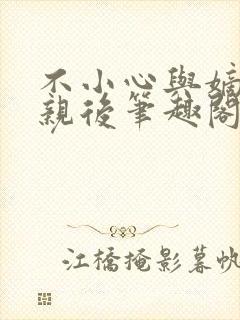 不小心與嫡
親後筆趣閣
江橋掩影暮帆